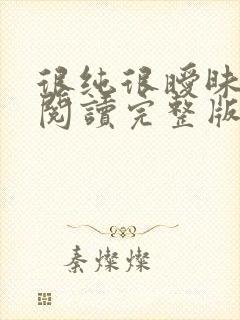 很纯很曖昧
閱讀完整版
秦燦燦